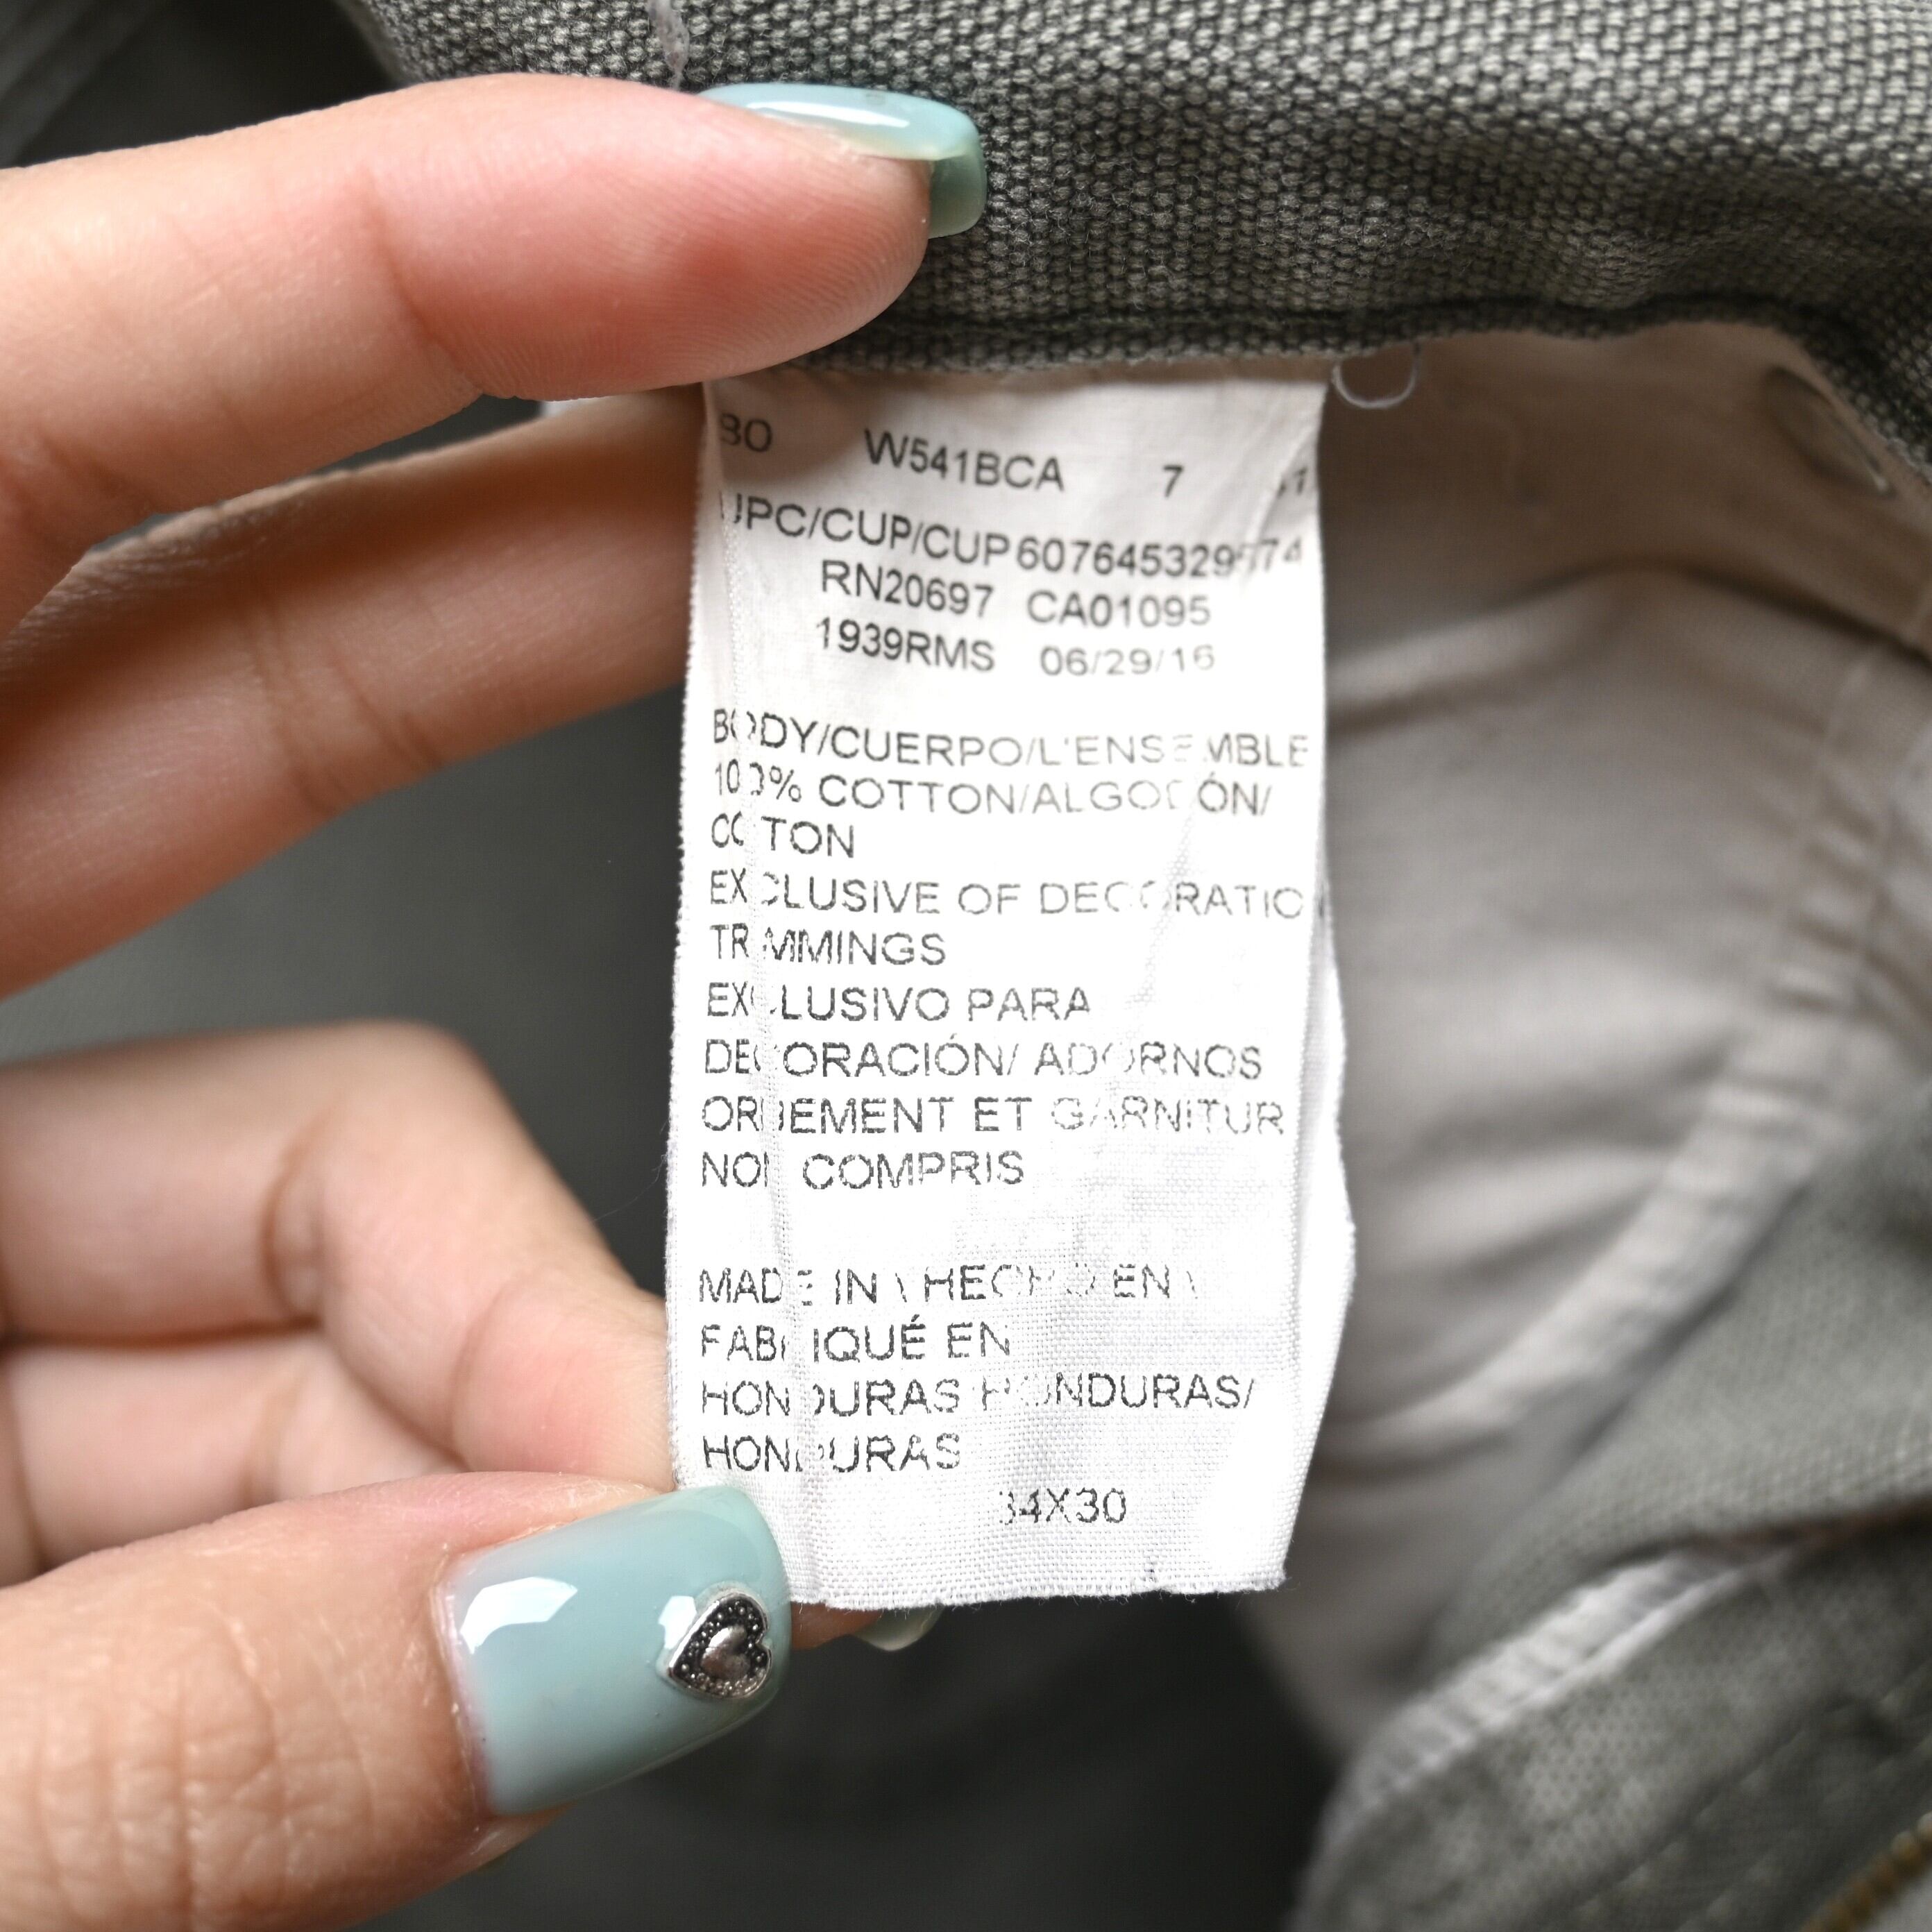 W541BCA 7
UPC/CUP/CUP
RN20697 CA01095
1939RMS 06/29/16
BODY/CUERPO/L'ENSEMBLE
100% COTTON/ALGODÓN/
COTON
EXCLUSIVE OF DECORATION
TRIMMINGS
EXCLUSIVO PARA
DECORACIÓN/ ADORNOS
ORDEMENT ET GARNITUR
NON COMPRIS
MADE IN \ HECHO EN \
FABRIQUÉ EN
HONDURAS/HONDURAS/
HONDURAS
34X30